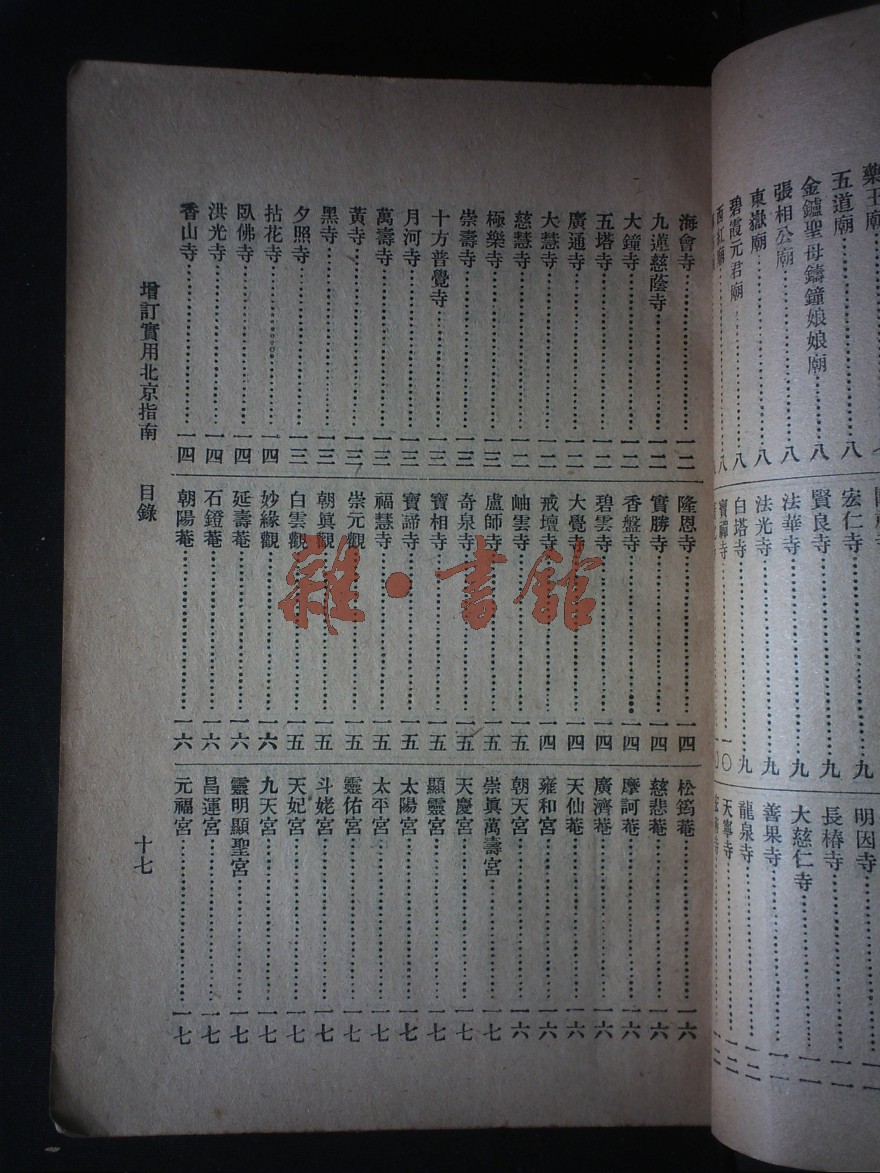 藥王廟
五道廟……八
金鑪聖母鑄鐘娘娘廟……八
張相公廟……八
東嶽廟……八
碧霞元君廟……八
宏仁寺……九
賢良寺……九
法華寺……九
法光寺……九
白塔寺……九
寶禪寺……一〇
明因寺……一一
長椿寺……一一
大慈仁寺……一一
善果寺……一一
龍泉寺……一二
天寧寺……一二
海會寺……一二
九蓮慈蔭寺……一二
大鐘寺……一二
五塔寺……一二
廣通寺……一二
大慧寺……一二
慈慧寺……一二
極樂寺……一三
崇壽寺……一三
十方普覺寺……一三
月河寺……一三
萬壽寺……一三
黃寺……一三
黑寺……一三
夕照寺……一三
拈花寺……一四
臥佛寺……一四
洪光寺……一四
香山寺……一四
隆恩寺……一四
實勝寺……一四
香盤寺……一四
碧雲寺……一四
大覺寺……一四
戒壇寺……一四
岫雲寺……一五
盧師寺……一五
奇泉寺……一五
寶相寺……一五
寶諦寺……一五
福慧寺……一五
崇元觀……一五
朝眞觀……一五
白雲觀……一五
妙緣觀……一六
延壽菴……一六
石鐙菴……一六
朝陽菴……一六
松筠菴……一六
慈悲菴……一六
摩訶菴……一六
廣濟菴……一六
天仙菴……一六
雍和宮……一六
朝天宮……一六
崇眞萬壽宮……一七
天慶宮……一七
顯靈宮……一七
太陽宮……一七
太平宮……一七
靈佑宮……一七
斗姥宮……一七
天妃宮……一七
九天宮……一七
靈明顯聖宮……一七
昌運宮……一七
元福宮……一七
增訂實用北京指南 目錄 十七
雜·書館